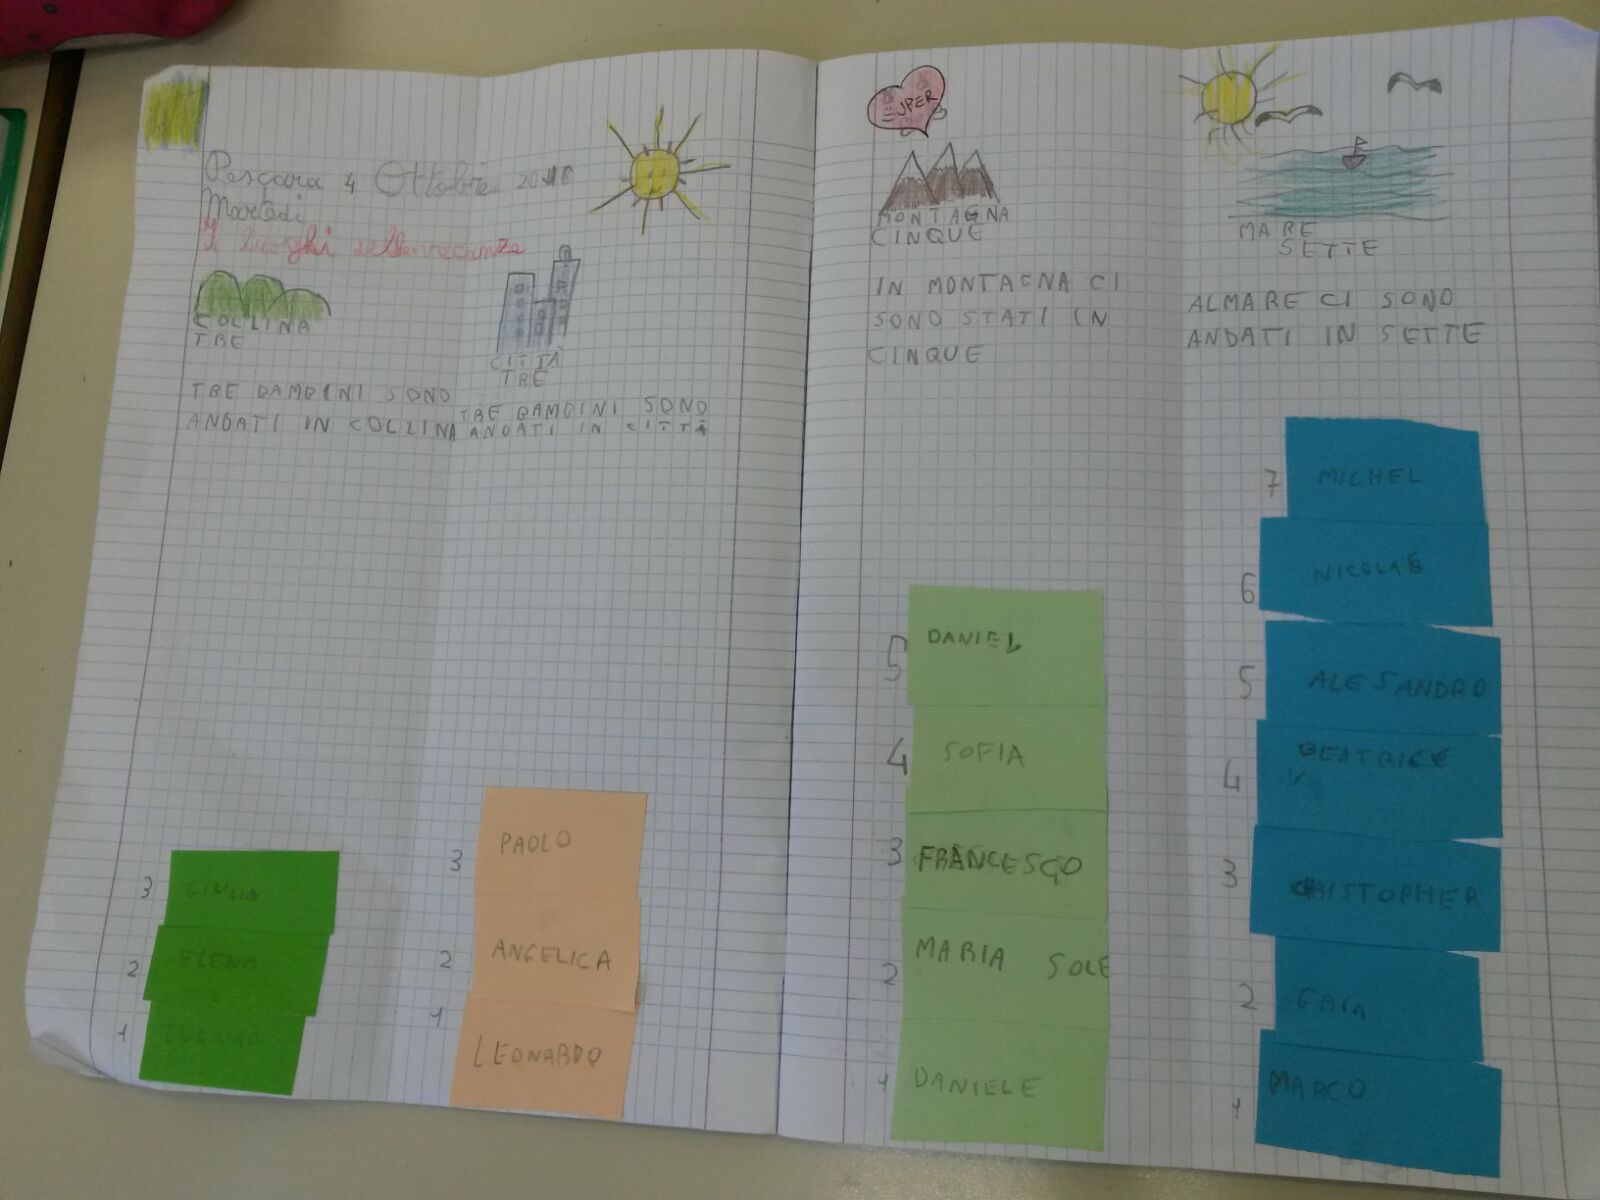 Pescara 4 Ottobre 2016
Martedì
I luoghi delle vacanze
COLLINA
TRE
TRE BAMBINI SONO
ANDATI IN COLLINA
CITTÀ
TRE
TRE BAMBINI SONO
ANDATI IN CITTÀ
3 GIULIA
2 ELENA
1
3 PAOLO
2 ANGELICA
1 LEONARDO
SUPER
MONTAGNA
CINQUE
IN MONTAGNA CI
SONO STATI IN
CINQUE
5 DANIEL
4 SOFIA
3 FRANCESCO
2 MARIA SOLE
1 DANIELE
MARE
SETTE
ALMARE CI SONO
ANDATI IN SETTE
7 MICHEL
6 NICOLAS
5 ALESANDRO
4 BEATRICE
3 CHRISTOPHER
2 GAIA
1 MARCO